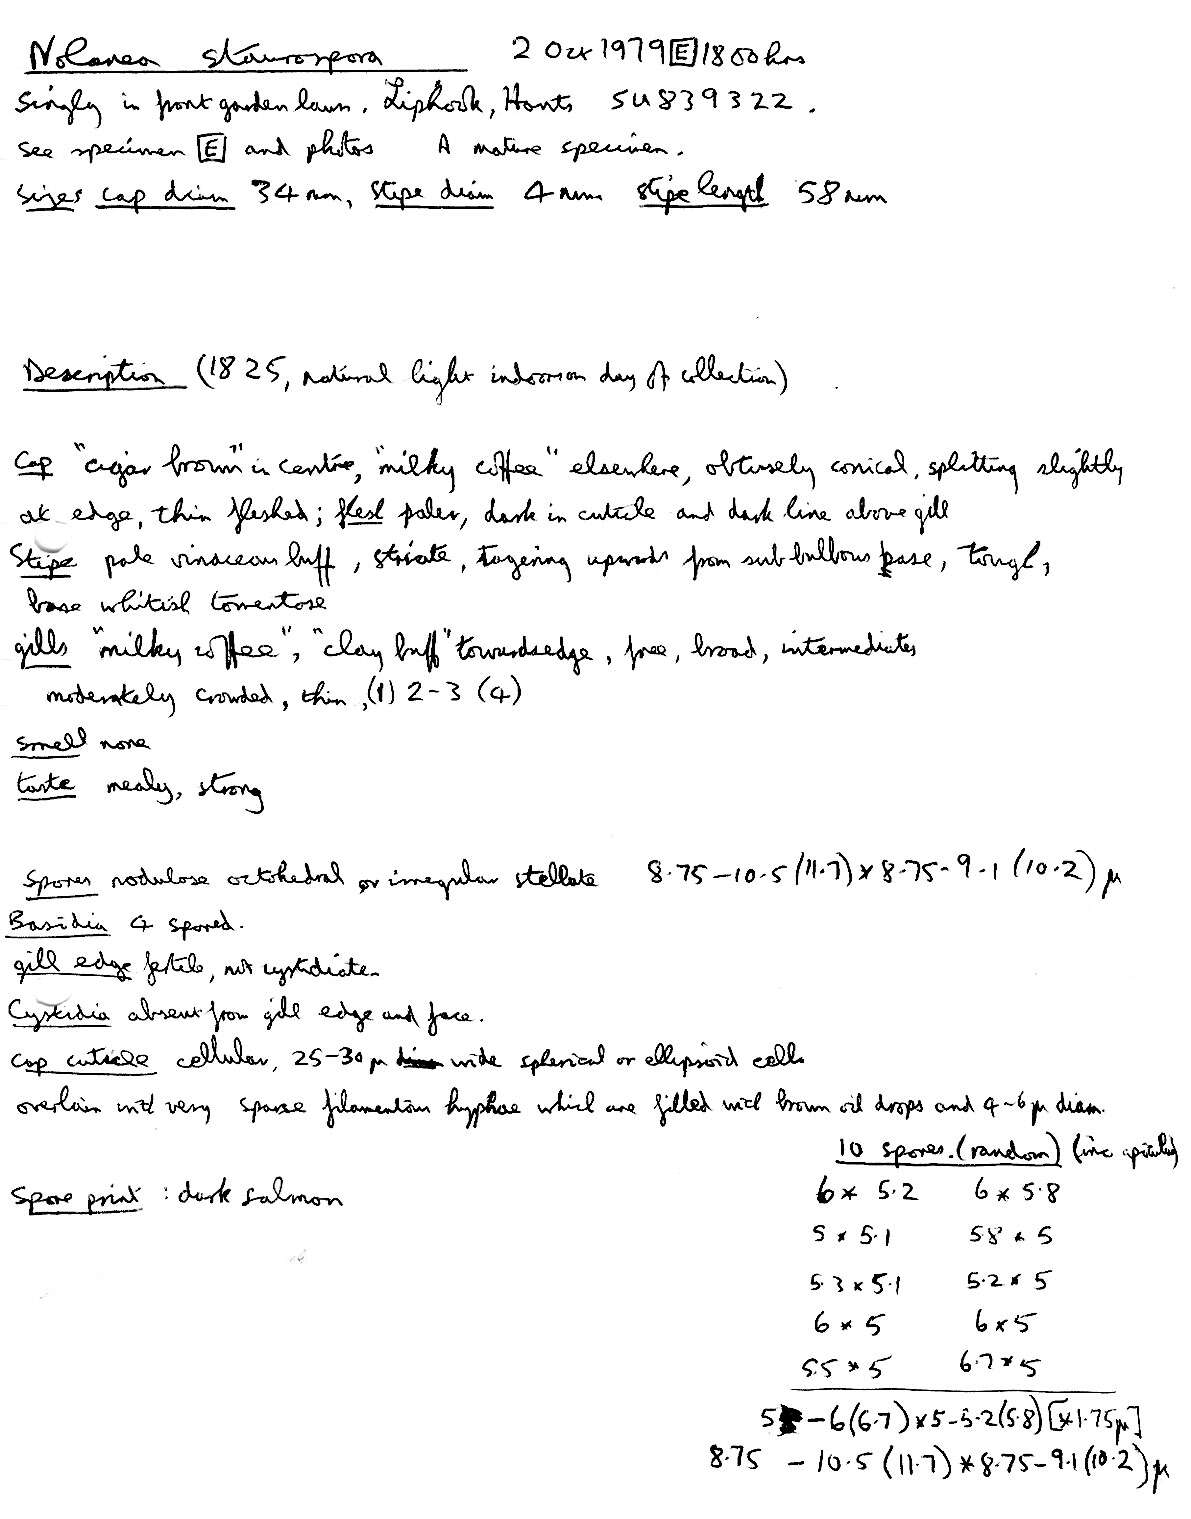 Nolanea staurospora 2 Oct 1979 E 1800hrs
Singly in front garden lawn. Liphook, Hants SU839322.
See specimen E and photos A mature specimen.
Sizes cap diam 34mm, stipe diam 4mm stipe length 58mm
Description (1825, natural light indoors on day of collection)
Cap "cigar brown" in centre, "milky coffee" elsewhere, obtusely conical, splitting slightly
at edge, thin fleshed; flesh paler, dark in cuticle and dark line above gill
Stipe pale vinaceous buff, striate, tapering upwards from sub bulbous base, tough,
base whitish tomentose
gills "milky coffee", "clay buff" towards edge, free, broad, intermediates
moderately crowded, thin, (1) 2-3 (4)
smell none
taste mealy, strong
Spores nodulose octohedral or irregular stellate 8.75-10.5(11.7)×8.75-9.1(10.2)µ
Basidia 4 spored.
gill edge fertile, not cystidiate.
Cystidia absent from gill edge and face.
Cap cuticle cellular, 25-30µ wide spherical or ellipsoid cells
overlain with very sparse filamentous hyphae which are filled with brown oil drops and 4-6µ diam.
10 spores. (random) (inc apiculus)
Spore print : dark salmon
6 × 5.2 6 × 5.8
5 × 5.1 5.8 × 5
5.3 × 5.1 5.2 × 5
6 × 5 6 × 5
5.5 × 5 6.7 × 5
5 -6(6.7)×5-5.2(5.8)[×1.75µ]
8.75 -10.5(11.7)×8.75-9.1(10.2)µ